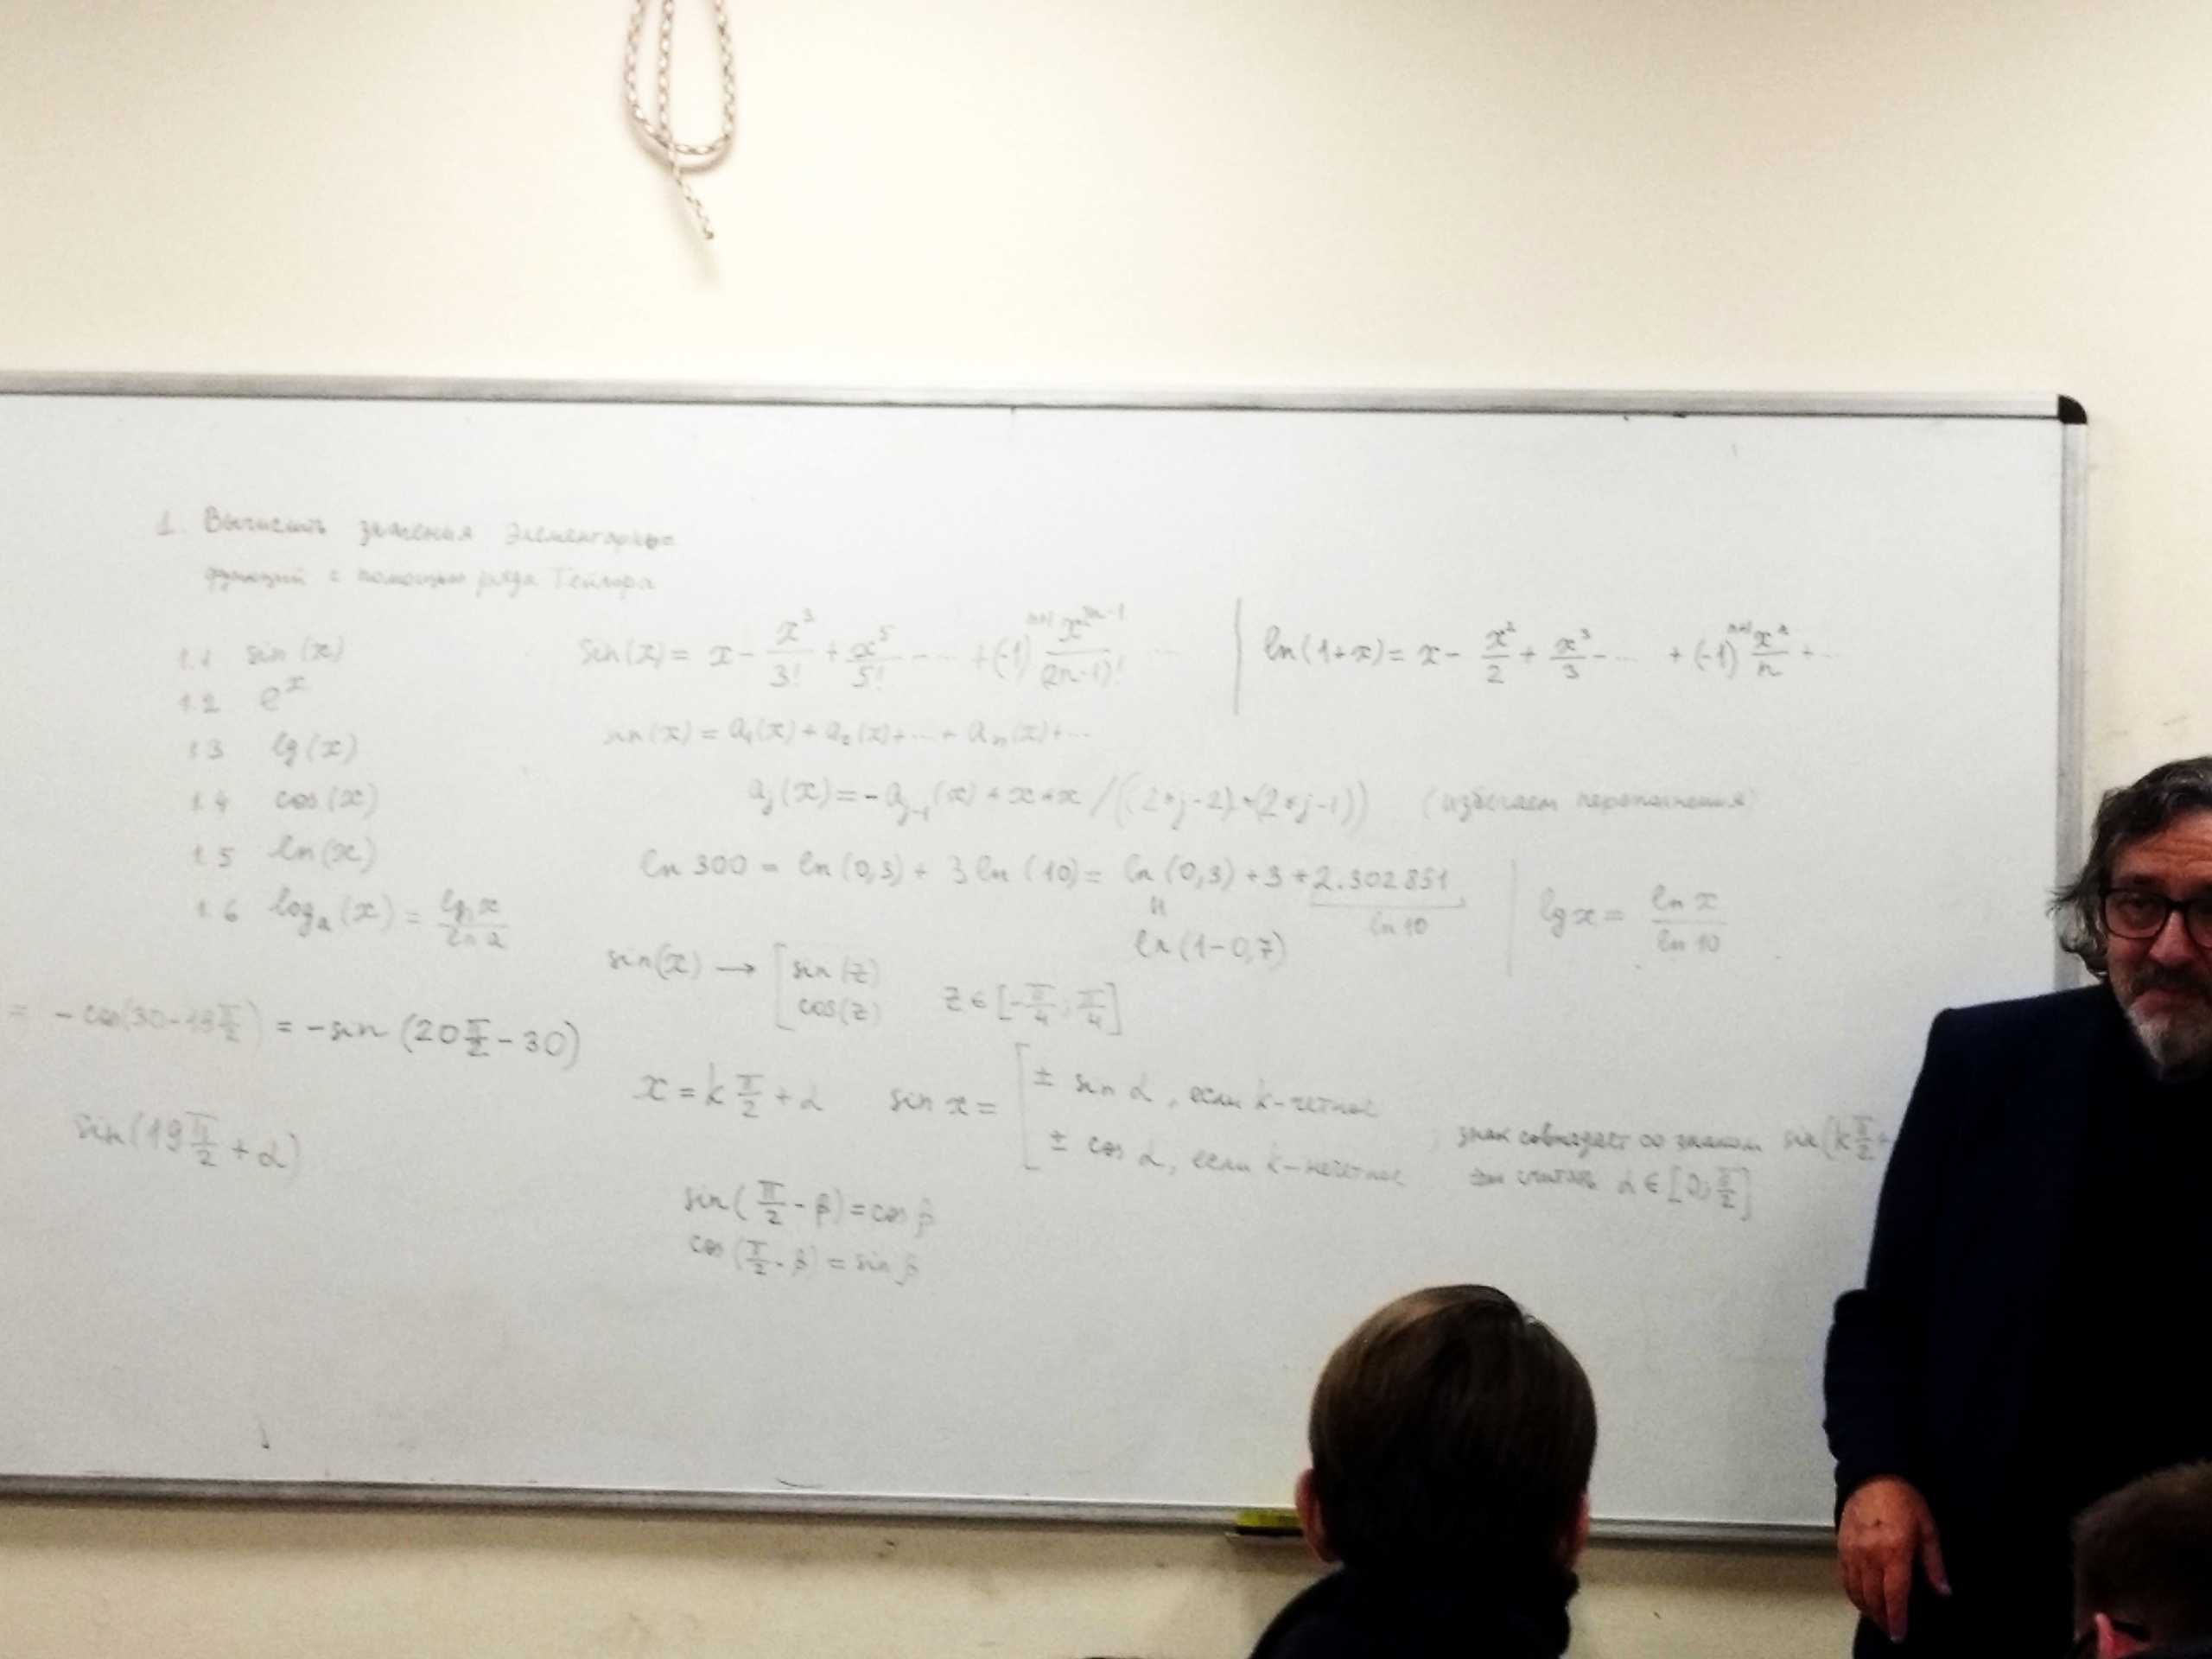 1. Вычислить значения элементарных
функций с помощью ряда Тейлора
1.1 sin(x)
1.2 e^x
1.3 lg(x)
1.4 cos(x)
1.5 ln(x)
1.6 log_a(x) = lg x / ln a
= -cos(30-19π/2) = -sin(20π/2-30)
sin(19π/2+α)
sin(x) = x - x^3/3! + x^5/5! - ... + (-1)^(n+1) x^(2n-1)/(2n-1)! ...
ln(1+x) = x - x^2/2 + x^3/3 - ... + (-1)^(n+1) x^n/n + ...
sin(x) = a_1(x) + a_2(x) + ... + a_n(x) + ...
a_j(x) = -a_(j-1)(x) * x * x / ((2*j-2)*(2*j-1)) (избегаем переполнения)
ln 300 = ln(0,3) + 3 ln(10) = ln(0,3) + 3 * 2.302851
ln 10
ln(1-0,7)
lg x = ln x / ln 10
sin(x) → [ sin(z)
cos(z) z ∈ [-π/4; π/4]
x = k π/2 + α sin x = [ ± sin α, если k-четное
± cos α, если k-нечетное
; знак совпадает со знаком sin(k π/2 +
считать α ∈ [0; π/2]
sin(π/2 - β) = cos β
cos(π/2 - β) = sin β